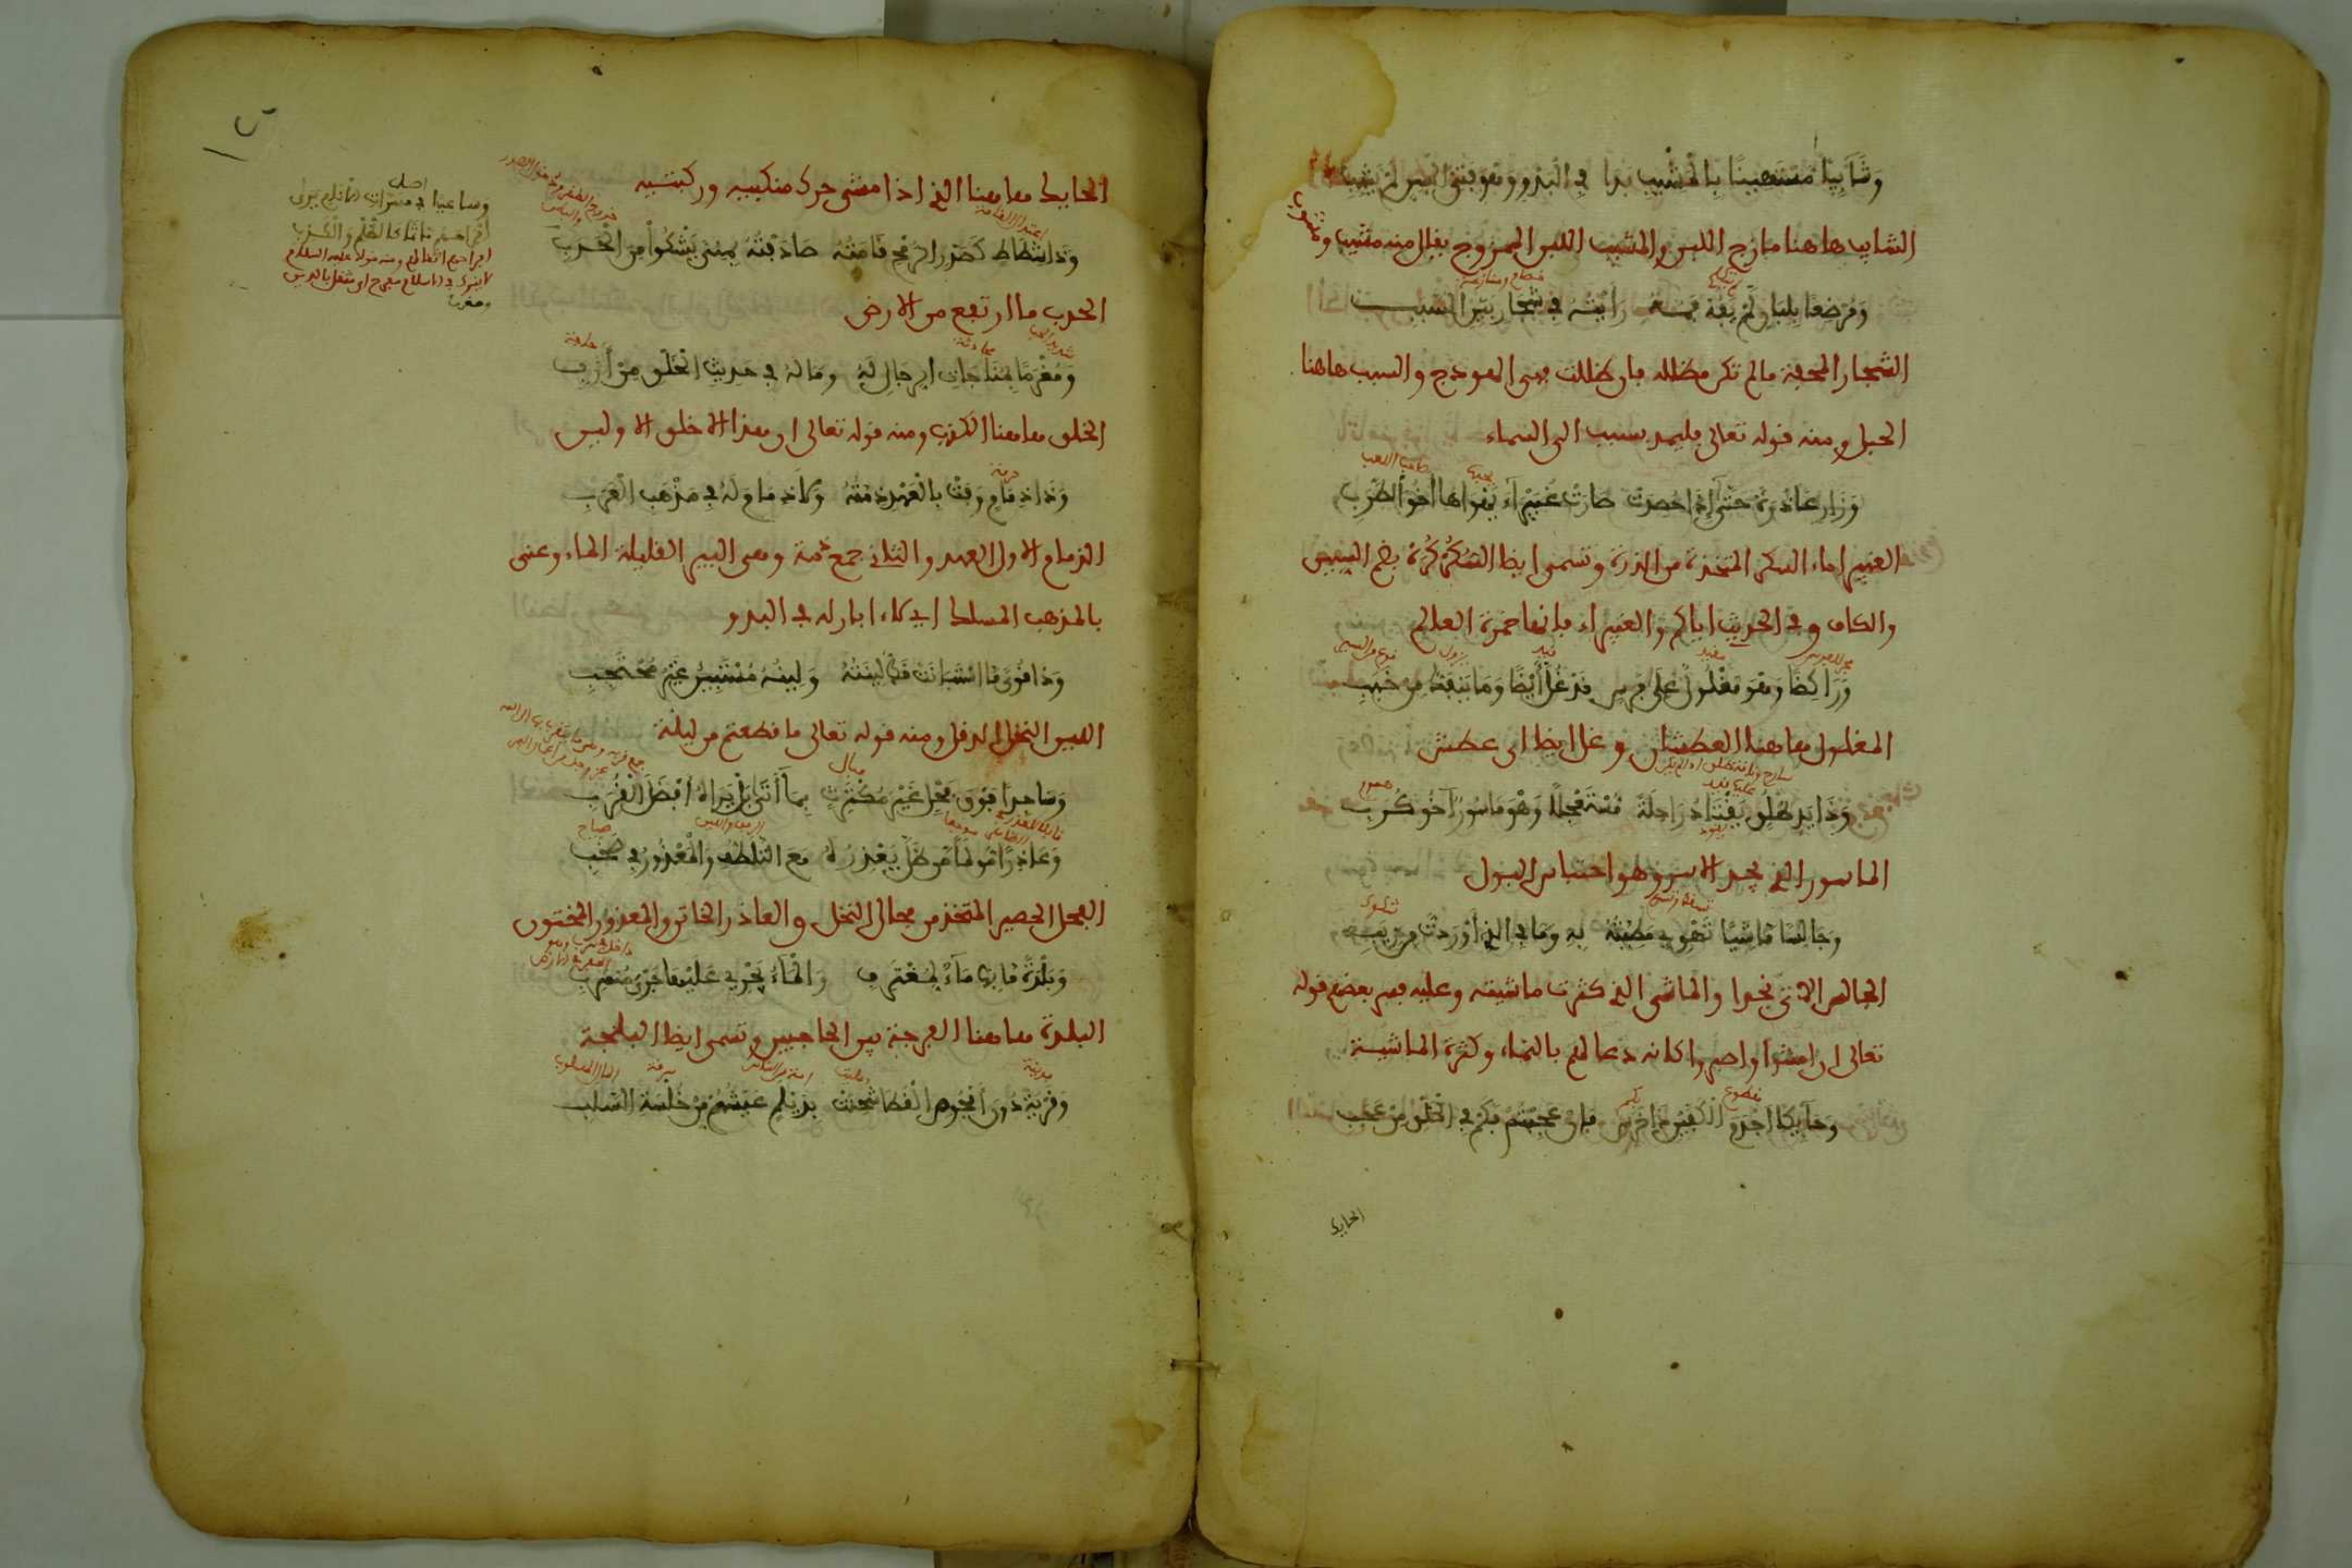 وَشَآيِبًا مُسْتَهِينًا بِالْمَشِيبِ بَدَا في الْبَدْوِ وهو فَتِيُّ السِّنِّ لَمْ يَشِبِ
الشايب هاهنا مازج اللبن والمشيب اللبن الممزوج يقال منه مشيب ومشوب
وَمُرْضَعًا بِلِبَانٍ لَمْ يَفُهْ فَمُهُ رَأَيْتُهُ في شِجَارٍ بَيِّنَ السَّبَبِ
الشجار المحفة مالم تكن مظللة فان ظللت فهي الهودج والسبب هاهنا
الحبل ومنه قوله تعالى فليمدد بسبب الى السماء
وَزَارِعًا ذُرَةً حَتَّى إِذَا حُصِدَتْ صَارَتْ غُبَيْرَآءَ يَهْوَاهَا أَخُو الطَّرَبِ
الغبيراء السكر المتخذة من الذرة وتسمى ايضا السُّكُرْكُرَةُ بضم السين
والكاف وفي الحديث اياكم والغبيراء فانها خمرة العالم
وَرَاكِضًا وَهْوَ مَغْلُولٌ عَلَى فَرَسٍ قَدْ غُلَّ أَيْضًا وَمَا يَنْفَكُّ مِن خَبَبِ
المغلول هاهنا العطشان وغل ايضا اي عطش
وَذَا يَدٍ طُلُقٍ يَقْتَادُ رَاحِلَةً مُسْتَعْجِلًا وَهْوَ مَاسُورٌ أَخُو كُرَبِ
الماسور الذي يجد الاسر وهو احتباس البول
وَجَالِسًا مَاشِيًا تَهْوِي مَطِيَّتُهُ بِهِ وَمَا في الذي أَوْرَدتُّ مِن رِيَبِ
الجالس الاتي نجدا والماشي الذي كثرت ماشيته وعليه فسر بعضهم قوله
تعالى ان امشوا واصبروا كانه دعا لهم بالنماء وكثرة الماشية
وَحَآيِكًا أَجْذَمَ الْكَفَّيْنِ ذَا خَرَسٍ فَإِنْ عَجِبْتُمْ فَكَمْ في الْخَلْقِ مِنْ عَجَبِ
الحايك
الحايك هاهنا الذي اذا مشى حرك منكبيه وركبتيه
وَذَا شَطَاطٍ كَصَدْرِ الرُّمْحِ قَامَتُهُ صَادَفْتُهُ بِمِنًى يَشْكُوا مِنَ الْحَدَبِ
الحدب ما ارتفع من الارض
وَمُغْرَمًا بِمُنَاجَاتِ الرِّجَالِ لَهُ وَمَا لَهُ في حَدِيثِ الْخَلْقِ مِنْ أَرَبِ
الخلق هاهنا الكذب ومنه قوله تعالى ان هذا الا خلق الاولين
وَذَا ذِمَامٍ وَفَتْ بِالْعَهْدِ ذِمَّتُهُ وَلَا ذِمَامَ لَهُ في مَذْهَبِ الْعَرَبِ
الذمام الاول العهد والثاني جمع ذمة وهي البير القليلة الماء وعنى
بالمذهب المسلك اي لا ابار له في البدو
وَذَا قُوًى مَا اسْتَبَانَتْ قَطُّ لِينَتُهُ وَلِينُهُ مُسْتَبِينٌ غَيْرُ مُحْتَجِبِ
اللين النخل الدقل ومنه قوله تعالى ما قطعتم من لينة
وَسَاجِدًا فَوْقَ فَحْلٍ غَيْرَ مُكْتَرِثٍ بِمَا أَتَى بَلْ يَرَاهُ أَفْضَلَ الْقُرَبِ
وَعَاذِرًا مُولِمًا مَن ظَلَّ يَعْذِرُهُ مَعَ التَّلَطُّفِ وَالْمَعْذُورُ في صَخَبِ
الفحل الحصير المتخذ من فحال النخل والعاذر الخاتن والمعذور المختون
وَبَلْدَةً مَا بِهَا مَآءٌ لِمُغْتَرِفٍ وَالْمَآءُ يَجْرِي عَلَيْهَا جَرْيَ مُنْسَرِبِ
البلدة هاهنا الفرجة بين الحاجبين وتسمى ايضا البلجة
وَقَرْيَةً دُونَ أُفْحُوصِ الْقَطَا شُحِنَتْ بِدَيْلَمٍ عَيْشُهُمْ مِنْ خُلْسَةِ السَّلَبِ